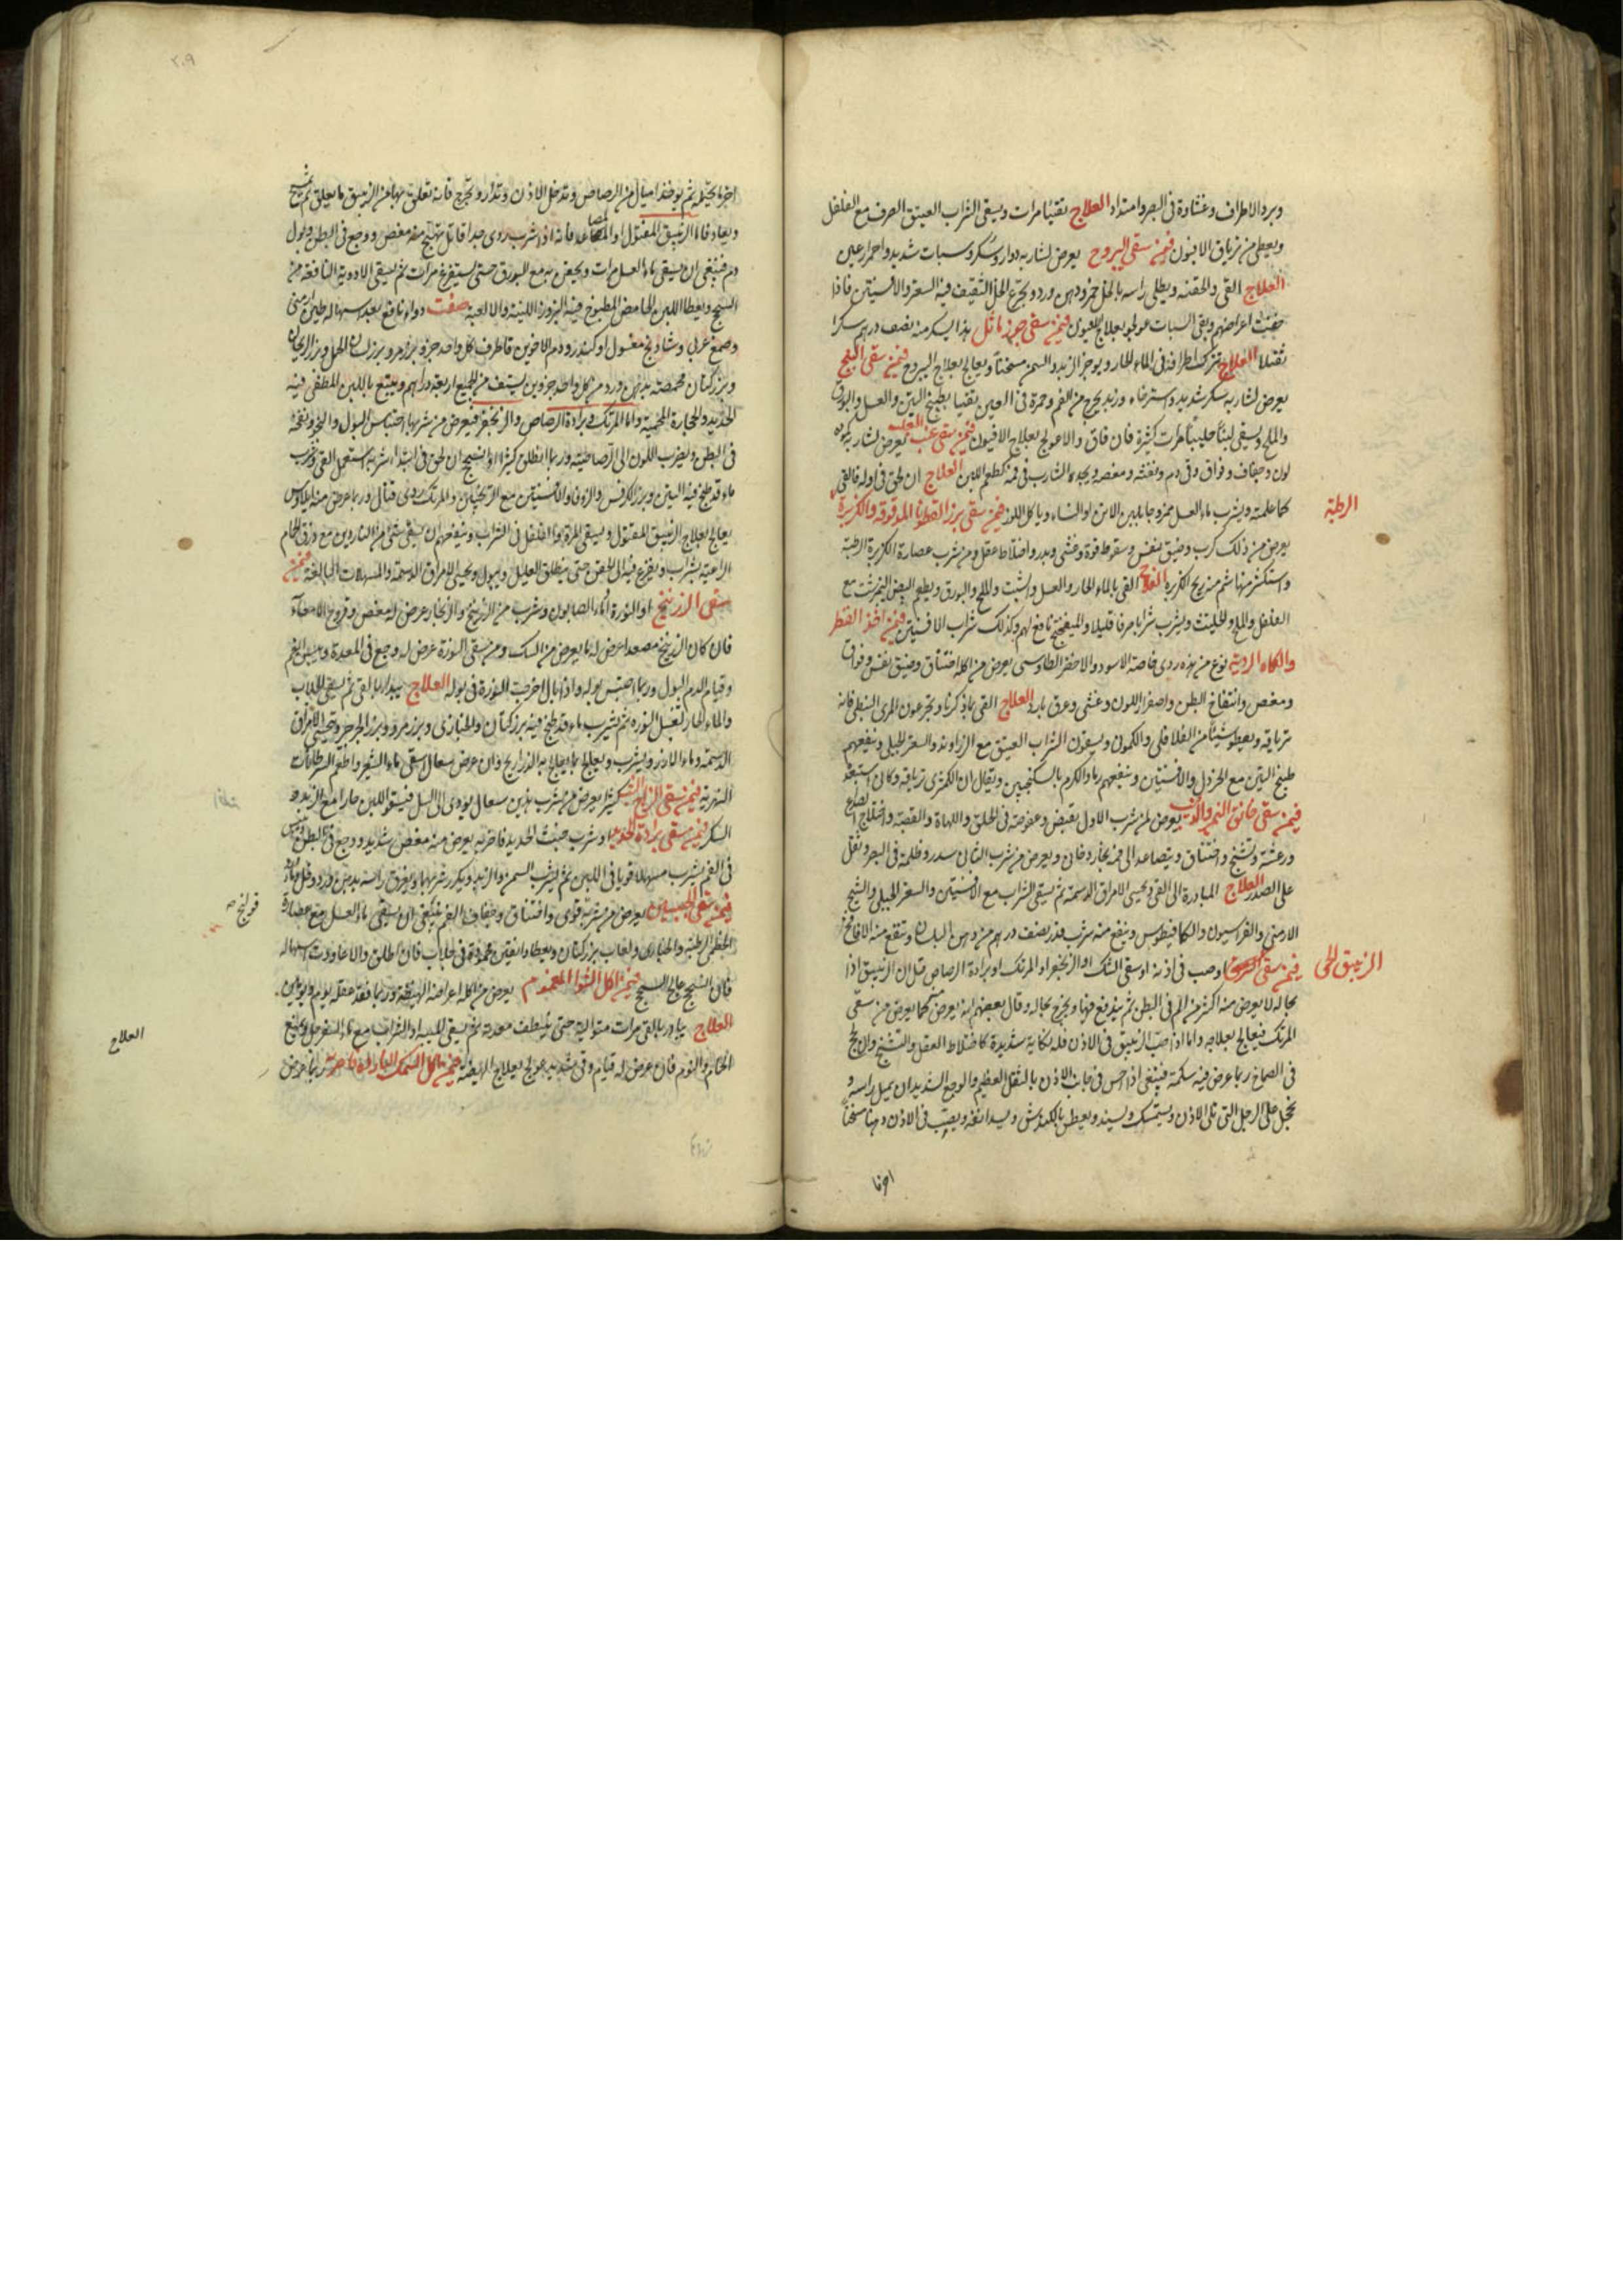 وبرد الاطراف وغشاوة فى البصر وامتداد العلاج يقيئا مرات ويسقى الشراب العتيق الصرف مع الفلفل
ويعطى من ترياق الافيون فيمن سقى اليبروح يعرض لشاربه دوار وسكر وسبات شديد واحمرار عين
العلاج القى والحقنه ويطلى راسه بالخل خمر ودهن ورد ويجرع الخل الثقيف فيه السعتر والافسنتين فاذا
خفت اعراضهم وبقى السبات عولجو بعلاج فيمن سقى جوز ماثل هذا يسكر منه نصف درهم سكرا
ثقيلا العلاج تترك اطرافه فى الماء الحار ويوجر الزبد والسمن مسخنا ويعالج بعلاج اليبروح فيمن سقى البنج
يعرض لشاربه سكر شديد واسترخاء وزبد يخرج من الفم وحمرة فى العين يقيا بطبيخ التين والعسل والبورق
والملح ويسقى لبنا حليبا مرات كثيرة فان فاق والا عولج بعلاج الافيون فيمن سقى عنب الثعلب يعرض لشاربه كموده
لون وجفاف وفواق وقى دم ونفثه ومغص ويجد الشارب فى فمه كطعم اللبن العلاج ان لحق فى اوله فالقى
كما علمته ويشرب ماء العسل ممزوجا بلبن الاتن او الشاء وياكل اللوز فيمن سقى بزر القطونا المدقوقة والكزبرة
الرطبة
يعرض من ذلك كرب وضيق نفس وسقوط قوة وغشى وبدر واختلاط عقل ومن شرب عصارة الكزبرة الرطبة
واستكثر منها شم منه ريح الكزبره العلاج القى بالماء الحار والعسل والشبت والملح والبورق ويطعم البيض النيمرشت مع
الفلفل والملح والحلتيت ويشرب شرابا صرفا قليلا والميفختج نافع لهم وكذلك شراب الافسنتين فيمن اخذ الفطر
والكماه الردية نوع من هذه ردى خاصة الاسود والاخضر الطاوسى يعرض من اكله اختناق وضيق نفس وفواق
ومغص وانتفاخ البطن واصفرار اللون وغشى وعرق بارد العلاج القى بما ذكرنا ويجرعون المرى النبطى فانه
ترياقه ويعطو شيئا من الفلافلى والكمون ويسقون الشراب العتيق مع الزراوند والسعتر الجبلى وينفعهم
طبيخ التين مع الخردل والافسنتين وينفعهم رماد الكرم بالسكنجبين ويقال ان الكمثرى ترياقه وكان
فيمن سقى خانق النمر والذئب يعرض لمن شرب الاول بقبض وعفوصة فى الحلق واللهاة والقصبة واختلاج
ورعشة وتشنج واختناق ويتصاعد الى فمه بخار دخان ويعرض من شرب الثانى سدر وظلمة فى البصر وثقل
على الصدر العلاج المبادرة الى القى ويحسى الامراق الدسمة ثم يسقى الشراب مع الافسنتين والسعتر الجبلى والشيح
الارمنى والفراسيون والكمافيطوس وينفع منه شرب قدر نصف درهم من دهن البلسان وتنفع منه الانافح
فيمن سقى الزيبق الحى او صب فى اذنه او سقى الشك او الزنجفر او المرتك او برادة الرصاص قيل ان الزيبق اذا
بحاله لا يعرض منه اكثر من الم فى البطن ثم يندفع فيها ويخرج بحاله وقال بعضهم انه يعرض منه كما يعرض من سقى
المرتك فيعالج بعلاجه واما اذا صب الزيبق فى الاذن فله نكاية شديدة كاختلاط العقل والتشنج وان لحج
فى الصماخ ربما عرض فيه سكتة فينبغى اذا احس فى جانب الاذن بالثقل العظيم والوجع الشديد ان يميل راسه و
يحجل على الرجل التى تلى الاذن ويتمسك وليسند ويعطس بالكندش ويسد انفه ويصب فى الاذن دهنا مسخنا
اخرنا
٢٠٩
ثم يوخذ اميال من الرصاص وتدخل الاذن وتدار ويخرج فانه تعلق بها من الزيبق ما يعلق ثم يمسح
ويعاد فاما الزيبق المقتول او المصاعد فانه اذا شرب ردى جدا قاتل تهيج منه مغص ووجع فى البطن وبول
دم فينبغى ان يسقى ماء العسل مرات ويحقن به مع البورق حتى يستفرغ مرات ثم يسقى الادوية النافعة من
السحج ويعطا اللبن الحامض المطبوخ فيه البزور اللينة والالعبة صفت دواء نافع بعد اسهاله طين ارمنى
وصمغ عربى وشادنج مغسول او كندر ودم الاخوين قاطر كل واحد جزو بزر مرو بزر لسان الحمل وبزر الريحان
وبزر كتان محمصة بدهن ورد من كل واحد جزوين يستف من الجميع اربعة دراهم ويتبع باللبن المطفى فيه
الحديد والحجارة المحمية واما المرتك وبرادة الرصاص والزنجفر فيعرض من شربها احتباس البول والنجو ونفخة
فى البطن ويضرب اللون الى الرصاصية وربما انطلق كثيرا او بسحج ان لحق فى ابتداء شربه استعمل القى وشرب
ماء قد طبخ فيه التين وبزر الكرفس والزوفا والافسنتين مع الترنجبين والمرتك ردى قتال وربما عرض منه ايلاوس
يعالج بعلاج الزيبق المقتول ويسقى المر والفلفل فى الشراب وينفعهم ان يسقى شى من الناردين مع ذرق الحمام
الراعية بشراب ويفزع فيه الى الحقن حتى ينطلق العليل ويبول ويحسى الامراق الدسمة والمسهلات البالغة فيمن
سقى الزرنيخ او النورة او ماء الصابون وشرب من الزرنيخ والزنجار عرض له مغص وقروح الامعآء
فان كان الزرنيخ مصعدا عرض له ما يعرض من الشك ومن سقى النورة عرض له وجع فى المعدة ويبس الفم
وقيام الدم البول وربما احتبس بوله واذا بال اخرجت النورة فى بوله العلاج يبدا بالقى ثم يسقى الجلاب
والماء الحار لتغسل النوره ثم يشرب ماء قد طبخ فيه بزر كتان والخبازى وبزر مرو وبزر الجرجر وتحسى الامراق
الدسمة وماء الارز وليشرب ويعالج بما يعالج به الذراريح وان عرض سعال اسقى ماء الشعير واطعم السرطانات
النهرية فيمن سقى الزاج الشب كثيرا يعرض من شرب هذين سعال يودى الى السل فيسقو اللبن حارا مع الزبد و
السكر فيمن سقى برادة الحديد وشرب خبث الحديد فاخر به يعرض منه مغص شديد ووجع فى البطن ويبس
فى الفم يشرب مسهلا قويا فى اللبن ثم ليشرب السمن والزبد ويكرر شربهما ويغرق راسه بدهن ورد وخل وماء
فيمن سقى الجبسين يعرض من شربه قولنج واختناق وجفاف الفم فينبغى ان يسقى ماء العسل مع عصارة
قولنج صح
الخطمى الرطبة والخبازى ولعاب بزر كتان ويعطا دانقين محمودة فى جلاب فان اطلق والا عاودت اسهاله
فان السحج عالج السحج فيمن اكل الشوا المغموم يعرض من اكله اعراضه الهيضة وربما فقد عقله يوم ويومين
العلاج يبادر بالقى مرات متوالية حتى ينظف معدته ثم يسقى الميبه او الشراب مع ماء السفرجل ويمنع
العلاج
الحمام والنوم فان عرض له قيام وقى شديد عولج بعلاج الهيضة فيمن ياكل السمك البارد ربما عرض